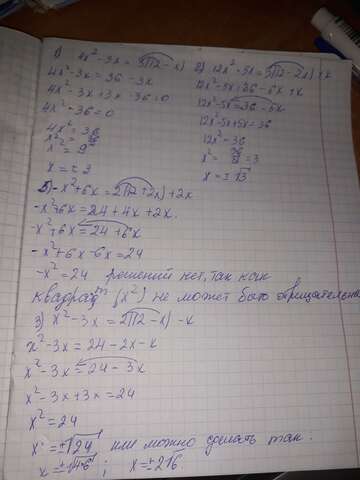 1) 4x² - 3x = 3(12 - x)
4x² - 3x = 36 - 3x
4x² - 3x + 3x - 36 = 0
4x² - 36 = 0
4x² = 36
x² = 9
x = ± 3
2) 12x² - 5x = 3(12 - 2x) + x
12x² - 5x = 36 - 6x + x
12x² - 5x = 36 - 5x
12x² - 5x + 5x = 36
12x² = 36
x² = 36/12 = 3
x = ±√3
5) -x² + 6x = 2(12 + 2x) + 2x
-x² + 6x = 24 + 4x + 2x.
-x² + 6x = 24 + 6x
-x² + 6x - 6x = 24
-x² = 24 решений нет, так как
квадрат (x²) не может быть отрицательн
3) x² - 3x = 2(12 - x) - x
x² - 3x = 24 - 2x - x
x² - 3x = 24 - 3x
x² - 3x + 3x = 24
x² = 24
x = ±√24, или можно сделать так:
x = ±√4·6 ; x = ±2√6.